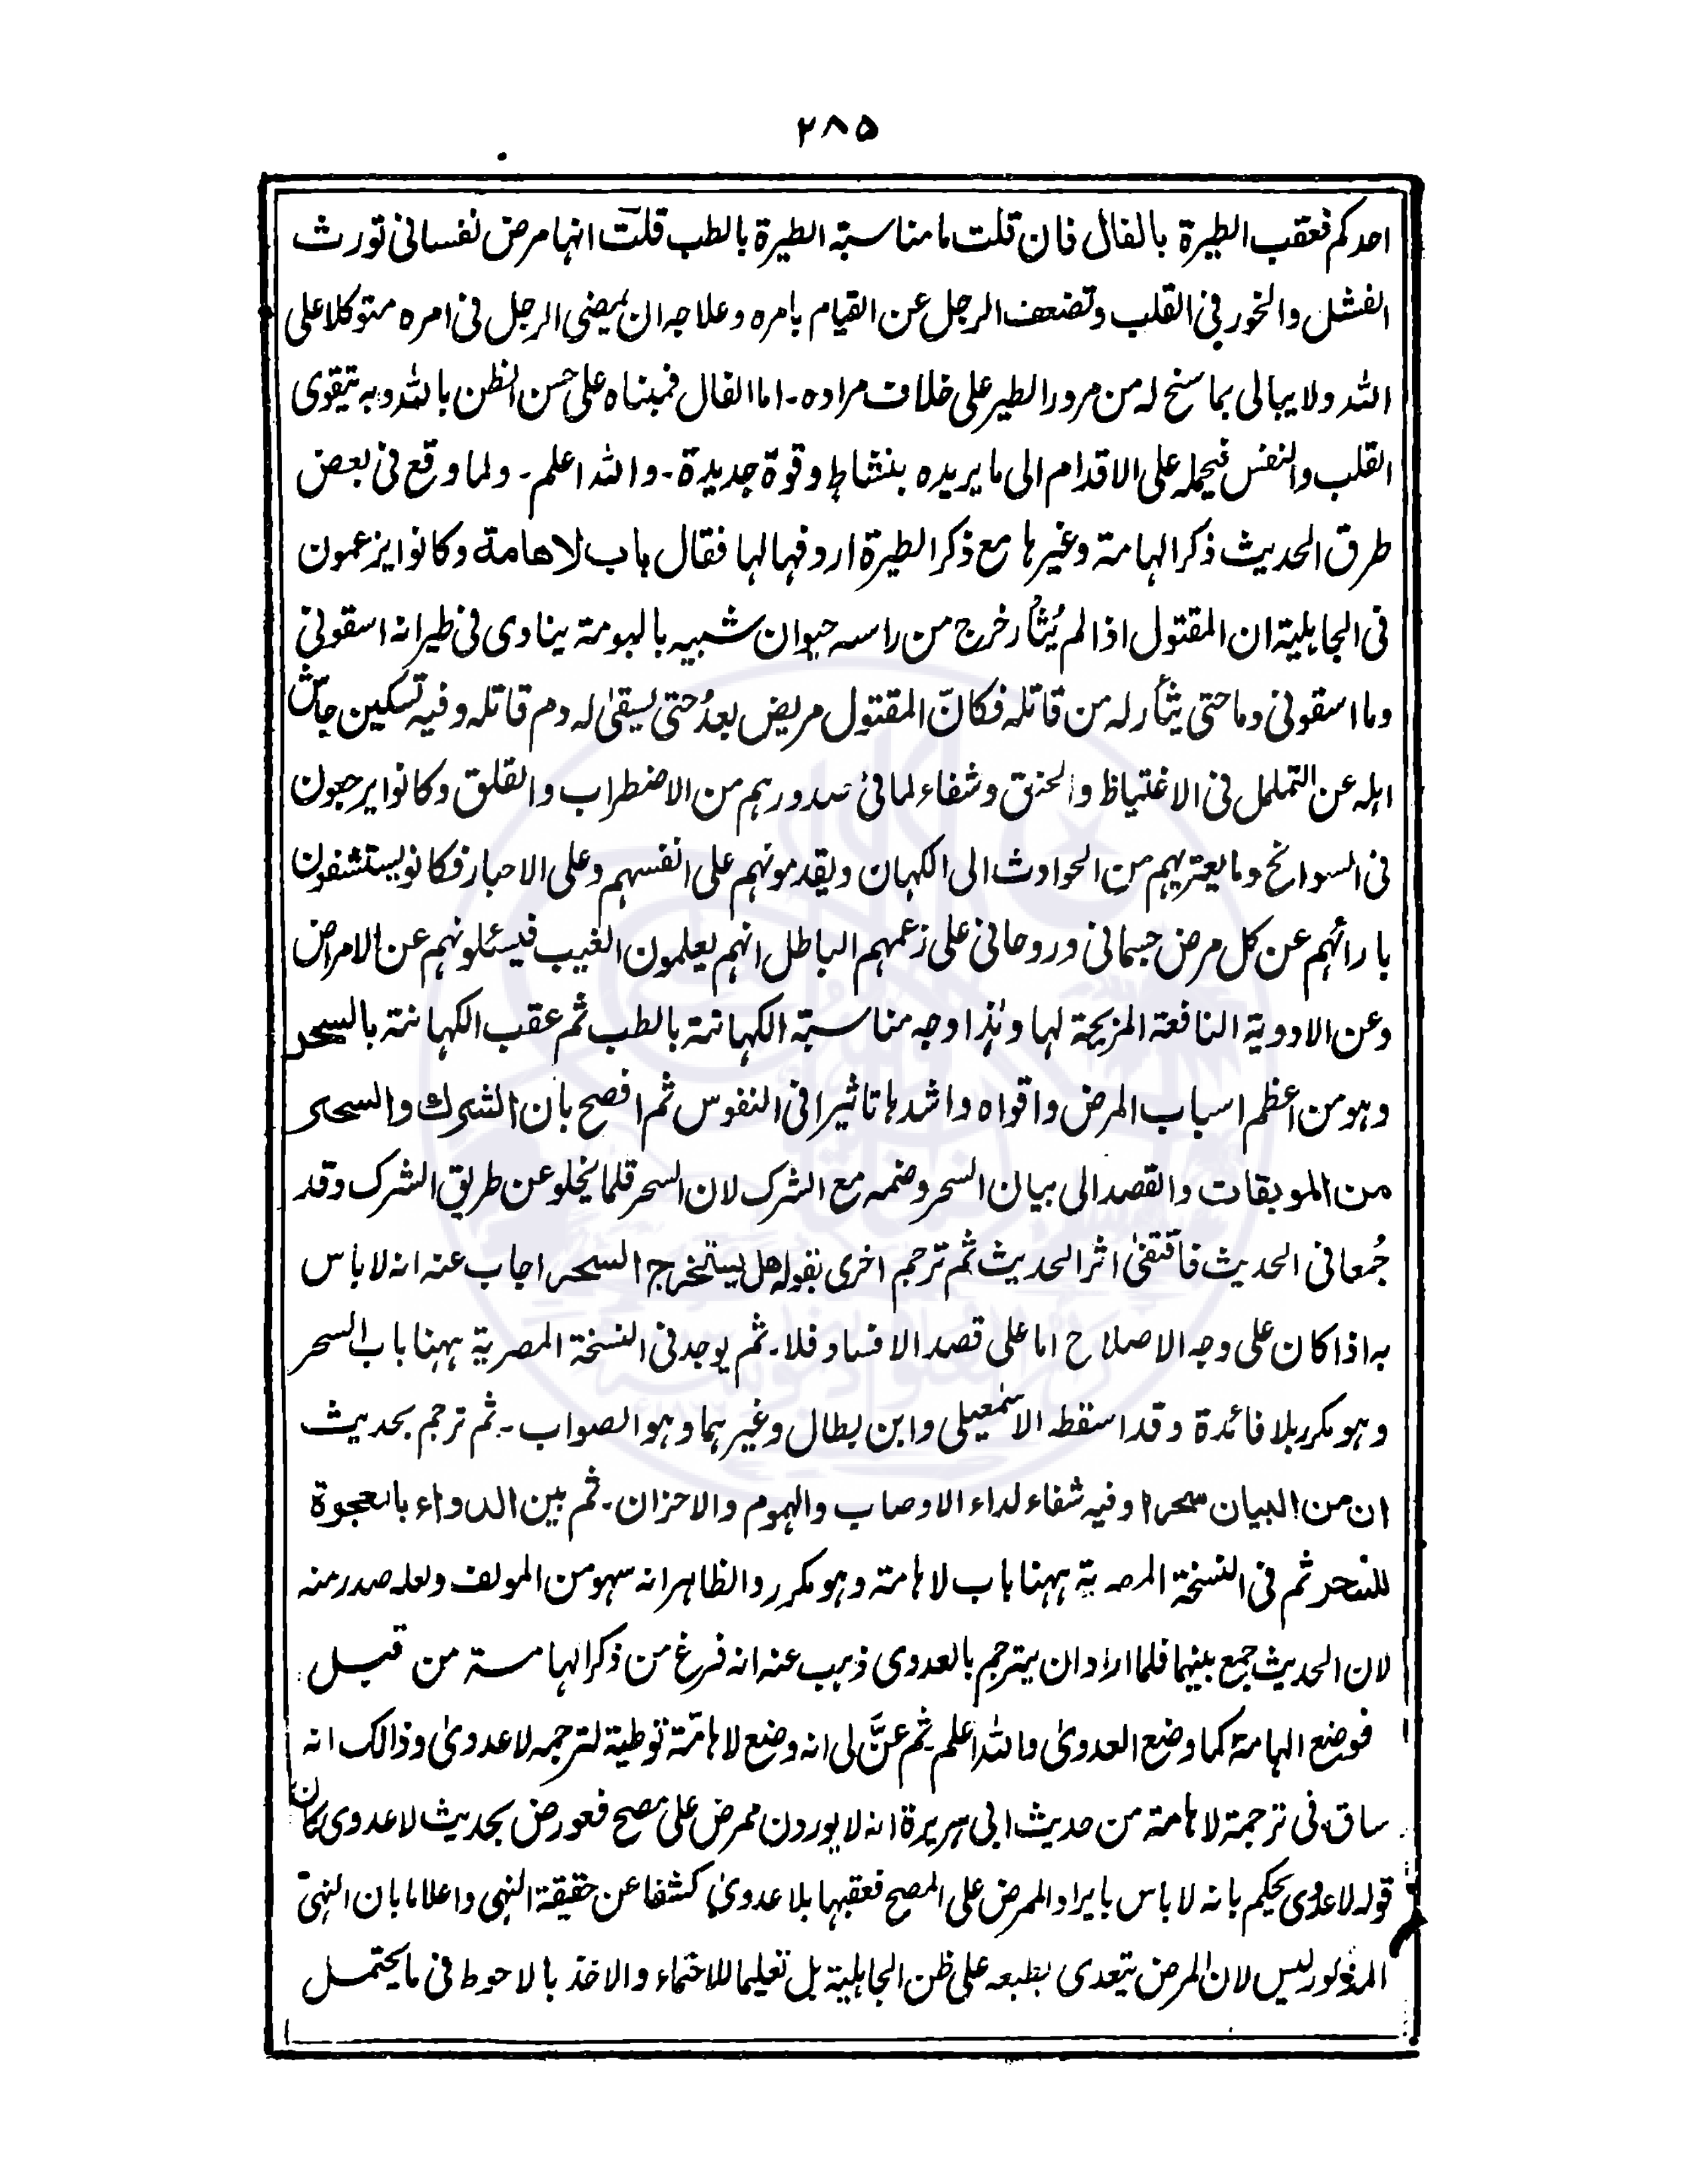 ۲۸۵
احدكم فعقب الطيرة بالفال فان قلت ما مناسبة الطيرة بالطب قلت انها مرض نفسانى تورث
الفشل والخور فى القلب وتضعف الرجل عن القيام بامره وعلاجه ان يمضى الرجل فى امره متوكلا على
الله ولا يبالى بما سنح له من مرور الطير على خلاف مراده ۔ اما الفال فمبناه على حسن الظن بالله وبه يتقوى
القلب والنفس فيحمله على الاقدام الى ما يريده بنشاط وقوة جديدة ۔ والله اعلم ۔ ولما وقع فى بعض
طرق الحديث ذكر الهامة وغيرها مع ذكر الطيرة اردفها لها فقال باب لاهامة وكانوا يزعمون
فى الجاهلية ان المقتول اذا لم يُثأر خرج من راسه حيوان شبيه بالبومة ينادى فى طيرانه اسقونى
وما اسقونى دما حتى يثأر له من قاتله فكانّ المقتول مريض بعدُ حتى يسقىٰ له دم قاتله وفيه تسكين جاش
اهله عن التململ فى الاغتياظ والحنق وشفاء لما فى صدورهم من الاضطراب والقلق وكانوا يرجعون
فى السوانح وما يعتريهم من الحوادث الى الكهان ويقدمونهم على انفسهم وعلى الاحبار فكانو يستشفون
بارائهم عن كل مرض جسمانى وروحانى على زعمهم الباطل انهم يعلمون الغيب فيسئلونهم عن الامراض
وعن الادوية النافعة المزيحة لها وهٰذا وجه مناسبة الكهانة بالطب ثم عقب الكهانة بالسحر
وهو من اعظم اسباب المرض واقواه واشدها تاثيرا فى النفوس ثم افصح بان الشرك والسحر
من الموبقات والقصد الى بيان السحر وضمه مع الشرك لان السحر قلما يخلو عن طريق الشرك وقد
جُمعا فى الحديث فاقتفىٰ اثر الحديث ثم ترجم اخرى بقوله هل يستخرج السحر اجاب عنه انه لا باس
به اذا كان على وجه الاصلاح اما على قصد الافساد فلا ۔ ثم يوجد فى النسخة المصرية ههنا باب السحر
وهو مكرر بلا فائدة وقد اسقطه الاسمٰعيلى وابن بطال وغيرهما وهو الصواب ۔ ثم ترجم بحديث
ان من البيان سحرا وفيه شفاء لداء الاوصاب والهموم والاحزان ۔ ثم بين الدواء بالعجوة
للسحر ثم فى النسخة المصرية ههنا باب لاهامة وهو مكرر والظاهر انه سهو من المولف ولعله صدر منه
لان الحديث جمع بينهما فلما اراد ان يترجم بالعدوى ذهب عنه انه فرغ من ذكر الهامة من قبل
فوضع الهامة كما وضع العدوىٰ والله اعلم ثم عنَّ لى انه وضع لاهامّة توطية لترجمه لاعدوىٰ وذالك انه
ساق فى ترجمة لاهامة من حديث ابى هريرة انه لا يوردن ممرض على مصح فعورض بحديث لاعدوى كان
قوله لاعدوى يحكم بانه لا باس بايراد الممرض على المصح فعقبها بلا عدوىٰ كشفا عن حقيقة النهى واعلاما بان النهىّ
المذكور ليس لان المرض يتعدى بطبعه على ظن الجاهلية بل تعليما للاحتماء والاخذ بالاحوط فى ما يحتمل